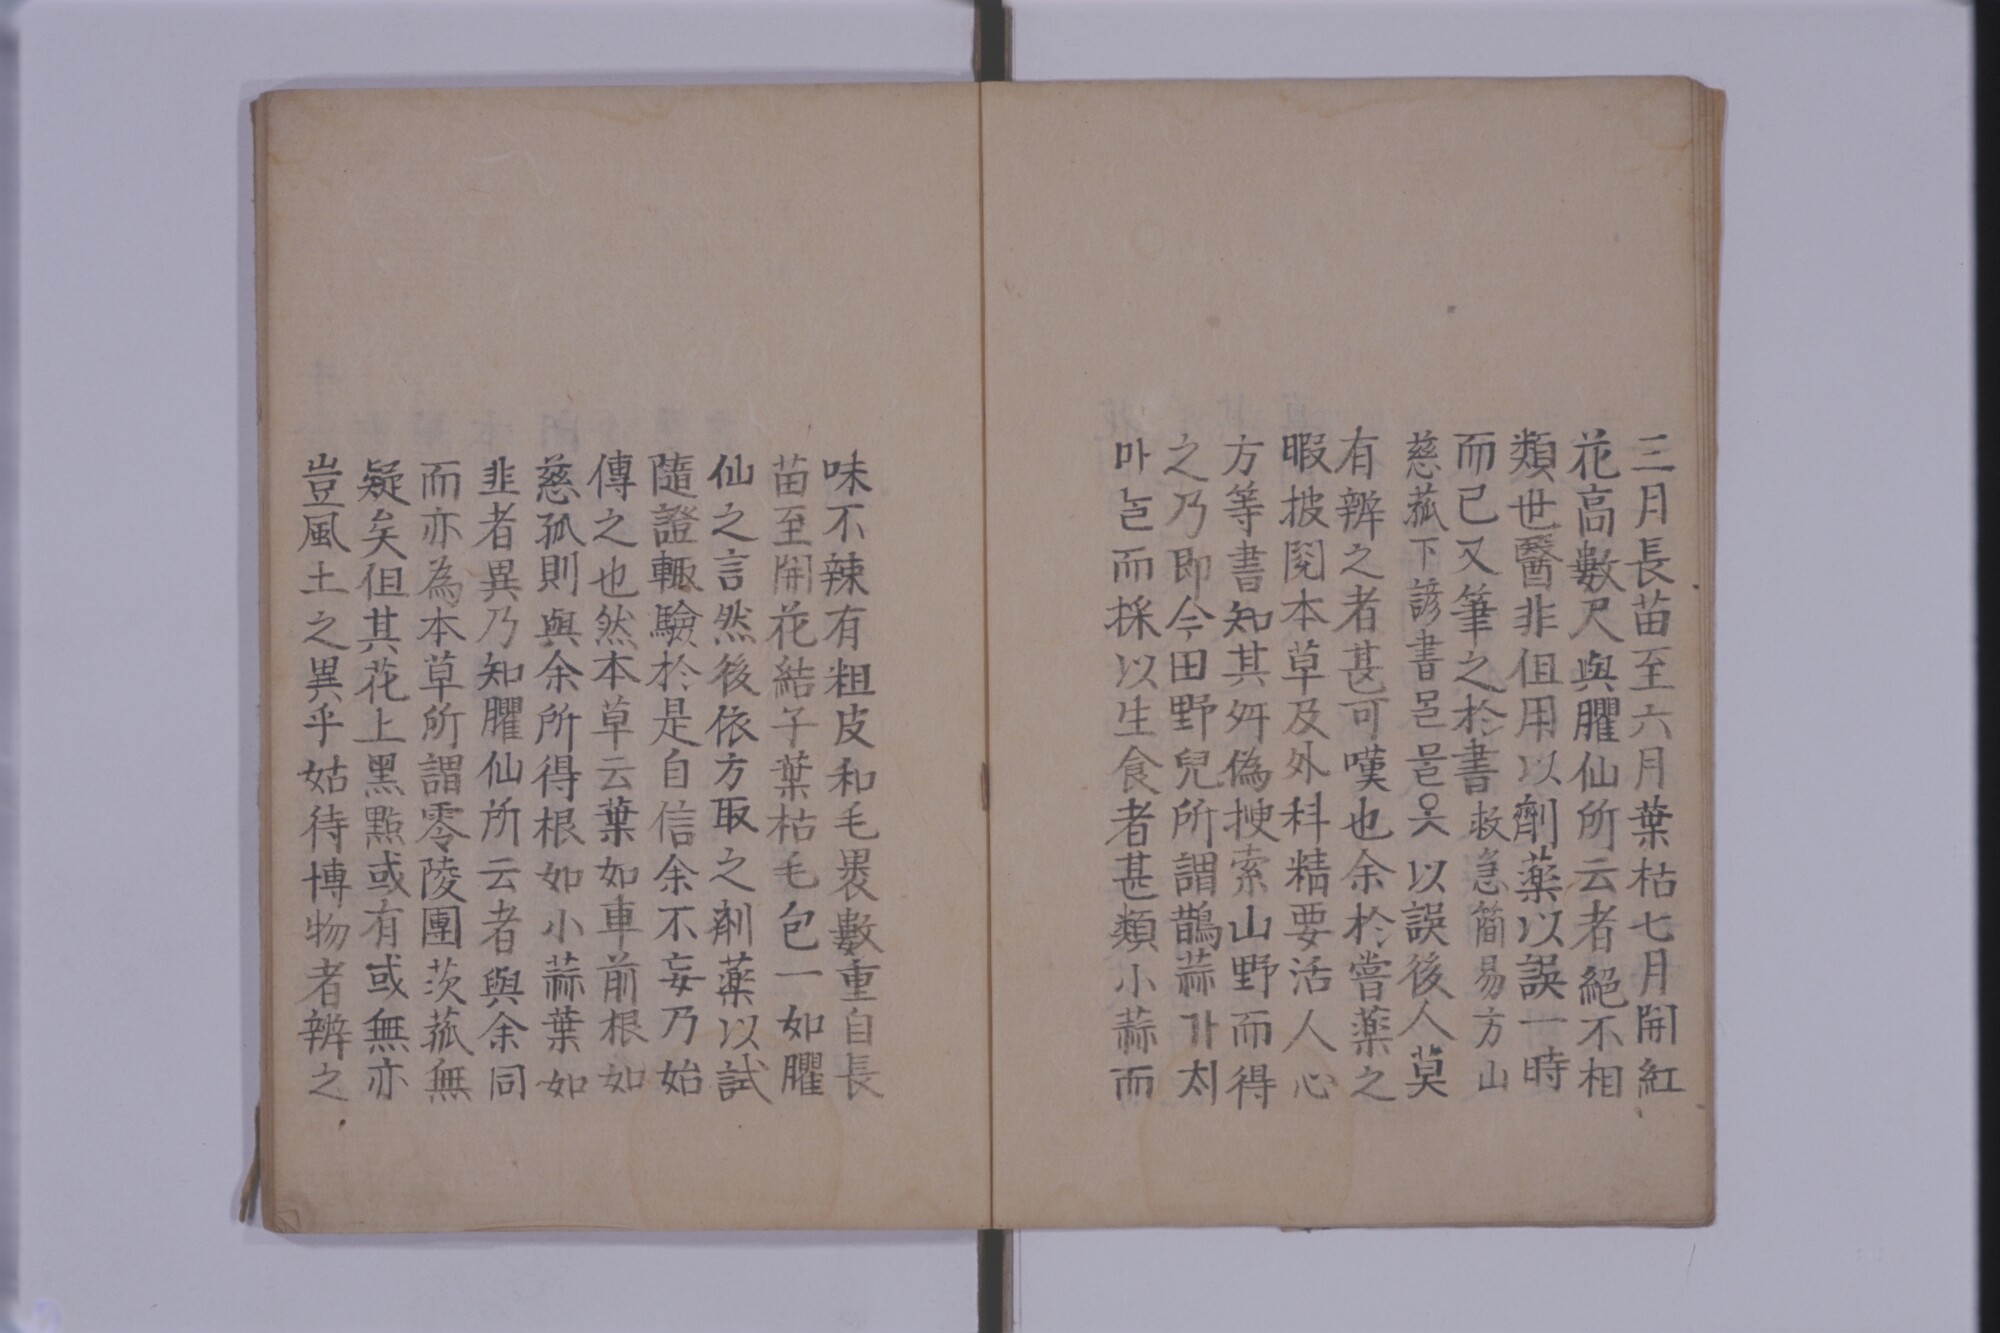 三月長苗至六月葉枯七月開紅
花高數尺與臞仙所云者絕不相
類世醫非但用以劑藥以誤一時
而已又筆之於書救急簡易方山
慈菰下諺書믈옷以誤後人莫
有辨之者甚可嘆也余於嘗藥之
暇披閱本草及外科精要活人心
方等書知其舛僞搜索山野而得
之乃卽今田野兒所謂鵲蒜가
마늘而採以生食者甚類小蒜而
味不辣有粗皮和毛裹數重自長
苗至開花結子葉枯毛包一如臞
仙之言然後依方取之劑藥以試
隨證輒驗於是自信余不妄乃始
傳之也然本草云葉如車前根如
慈孤則與余所得根如小蒜葉如
韭者異乃知臞仙所云者與余同
而亦為本草所謂零陵團茨菰無
疑矣但其花上黑點或有或無亦
豈風土之異乎姑待博物者辨之